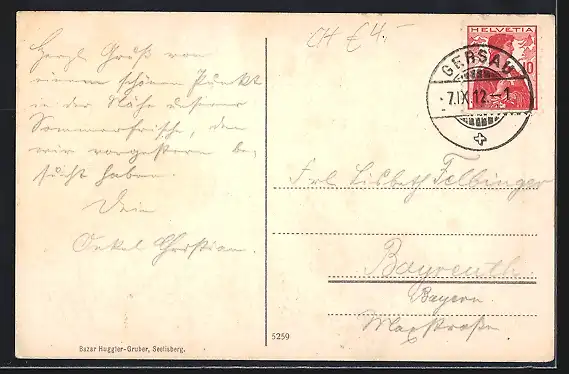 CH € 4.-
HELVETIA
10
GERSAU
7.IX.12.-1
Herzl. Gruß von
einem schönen Punkt
in der Nähe unserer
Sommerfrische, den
wir vorgestern be-
sucht haben.
Dein
Onkel Christian.
Frl. Lisbeth Felbinger
Bayreuth
Bayern
Maxstraße
5259
Bazar Huggler-Gruber, Seelisberg.